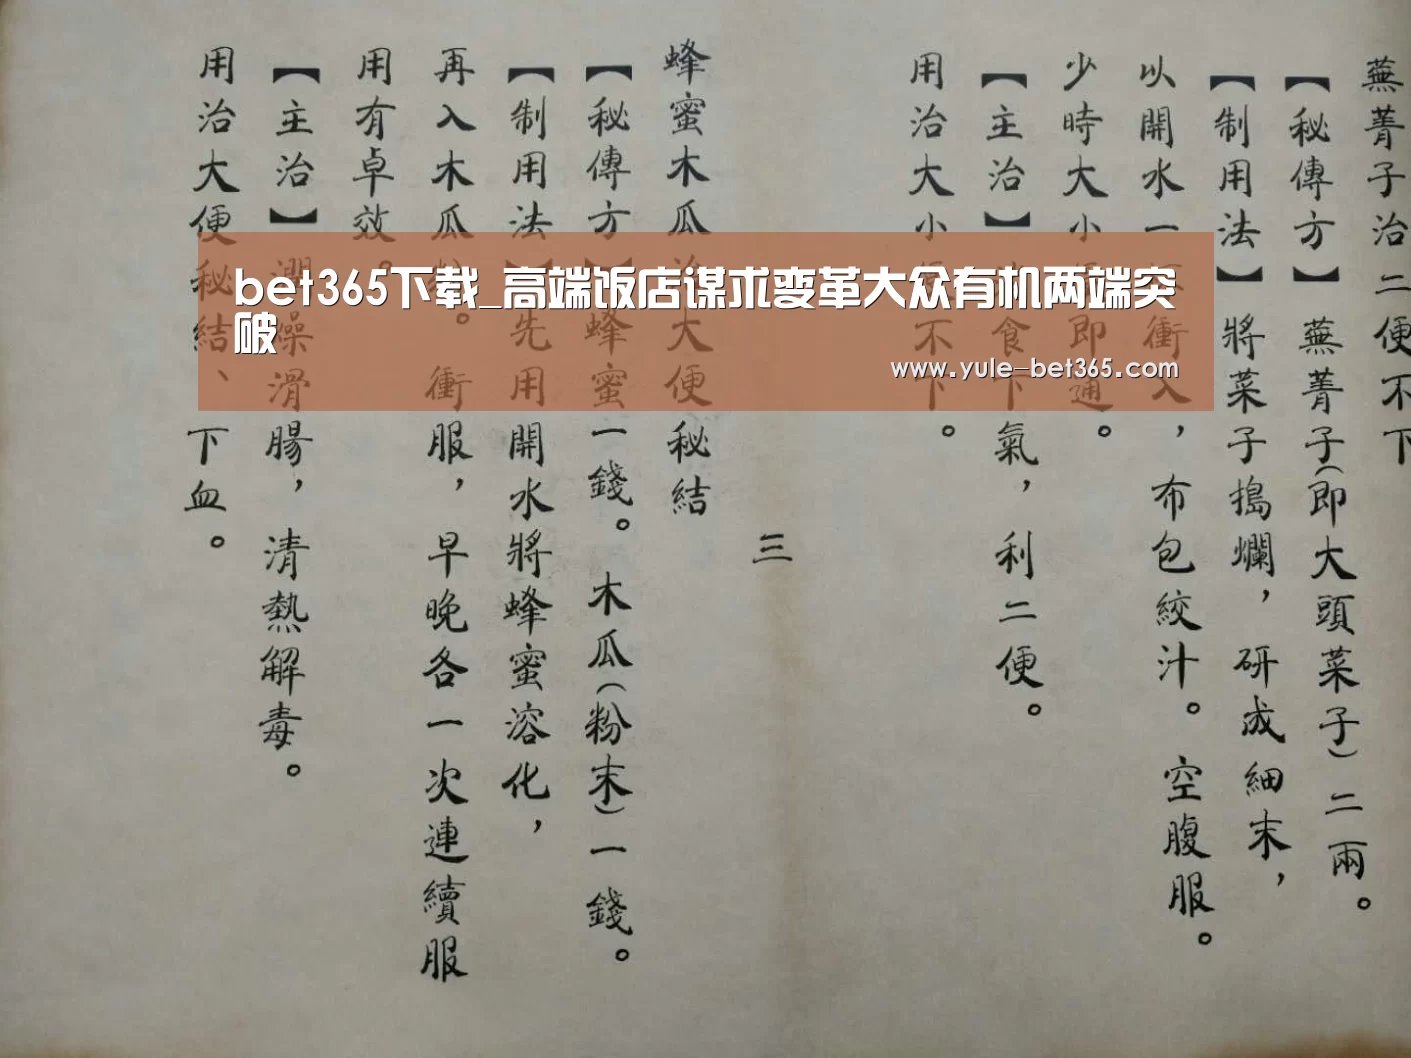 蕪菁子治二便不下
【秘傳方】蕪菁子(即大頭菜子)二兩。
【制用法】將菜子搗爛，研成細末，
以開水一衝入，布包絞汁。空腹服。
少時大小便即通。
【主治】食下氣，利二便。
用治大小便不下。
三
蜂蜜木瓜治大便秘結
【秘傳方】蜂蜜一錢。木瓜(粉末)一錢。
【制用法】先用開水將蜂蜜溶化，
再入木瓜粉。衝服，早晚各一次連續服
用有卓效。
【主治】潤燥滑腸，清熱解毒。
用治大便秘結、下血。
bet365下载_高端饭店谋求变革大众有机两端突
破
www.yule-bet365.com